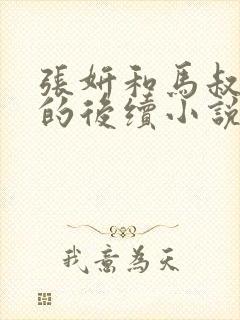 張妍和馬叔
的後續小說
我意為天